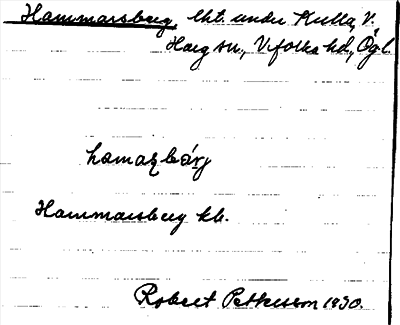 Hammarsberg, lht. under Kulla, V.
Harg sn., Vifolka hd, Ögl.
hamaʂbárj
Hammarsberg kb.
Robert Pettersson 1930.